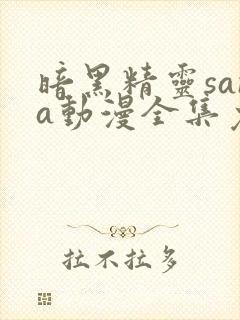 暗黑精靈sar
a動漫全集
拉不拉多